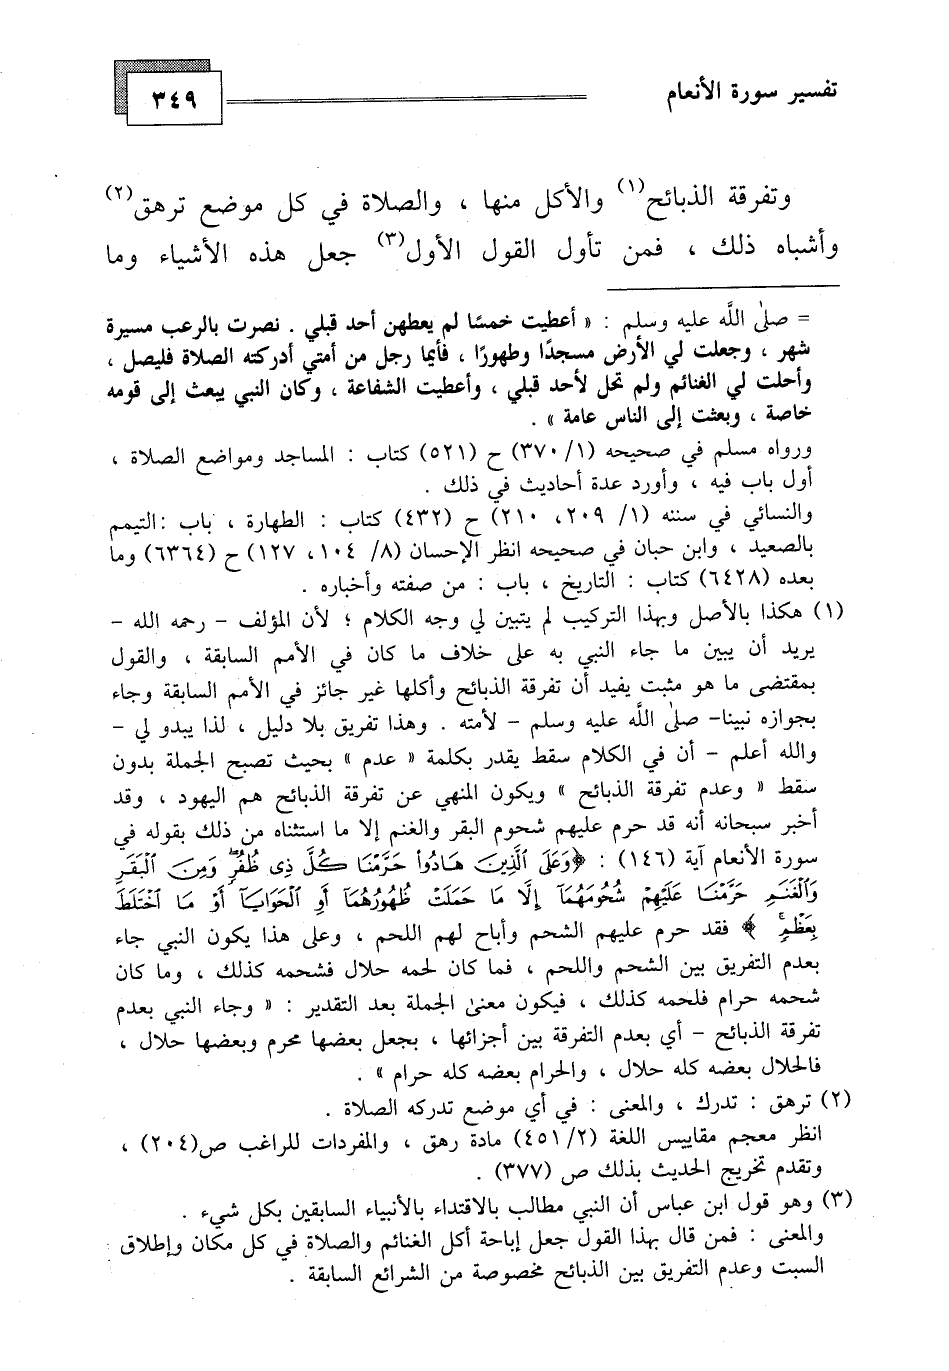 تفسير سورة الأنعام
٣٤٩
وتفرقة الذبائح(١) والأكل منها ، والصلاة في كل موضع ترهق(٢)
وأشباه ذلك ، فمن تأول القول الأول(٣) جعل هذه الأشياء وما
= صلى اللَّه عليه وسلم : « أعطيت خمسًا لم يعطهن أحد قبلي . نصرت بالرعب مسيرة
شهر ، وجعلت لي الأرض مسجدًا وطهورًا ، فأيما رجل من أمتي أدركته الصلاة فليصل ،
وأحلت لي الغنائم ولم تحل لأحد قبلي ، وأعطيت الشفاعة ، وكان النبي يبعث إلى قومه
خاصة ، وبعثت إلى الناس عامة » .
ورواه مسلم في صحيحه (١/ ٣٧٠) ح (٥٢١) كتاب : المساجد ومواضع الصلاة ،
أول باب فيه ، وأورد عدة أحاديث في ذلك .
والنسائي في سننه (١/ ٢٠٩، ٢١٠) ح (٤٣٢) كتاب : الطهارة ، باب :التيمم
بالصعيد ، وابن حبان في صحيحه انظر الإحسان (٨/ ١٠٤، ١٢٧) ح (٦٣٦٤) وما
بعده (٦٤٢٨) كتاب : التاريخ ، باب : من صفته وأخباره .
(١) هكذا بالأصل وبهذا التركيب لم يتبين لي وجه الكلام ؛ لأن المؤلف – رحمه الله –
يريد أن يبين ما جاء النبي به على خلاف ما كان في الأمم السابقة ، والقول
بمقتضى ما هو مثبت يفيد أن تفرقة الذبائح وأكلها غير جائز في الأمم السابقة وجاء
بجوازه نبينا– صلى اللَّه عليه وسلم – لأمته . وهذا تفريق بلا دليل ، لذا يبدو لي –
والله أعلم – أن في الكلام سقط يقدر بكلمة « عدم » بحيث تصبح الجملة بدون
سقط « وعدم تفرقة الذبائح » ويكون المنهي عن تفرقة الذبائح هم اليهود ، وقد
أخبر سبحانه أنه قد حرم عليهم شحوم البقر والغنم إلا ما استثناه من ذلك بقوله في
سورة الأنعام آية (١٤٦) : ﴿وَعَلَى ٱلَّذِينَ هَادُواْ حَرَّمْنَا كُلَّ ذِى ظُفُرٍۖ وَمِنَ ٱلْبَقَرِ
وَٱلْغَنَمِ حَرَّمْنَا عَلَيْهِمْ شُحُومَهُمَآ إِلَّا مَا حَمَلَتْ ظُهُورُهُمَآ أَوِ ٱلْحَوَايَآ أَوْ مَا ٱخْتَلَطَ
بِعَظْمٍۚ ﴾ فقد حرم عليهم الشحم وأباح لهم اللحم ، وعلى هذا يكون النبي جاء
بعدم التفريق بين الشحم واللحم ، فما كان لحمه حلال فشحمه كذلك ، وما كان
شحمه حرام فلحمه كذلك ، فيكون معنى الجملة بعد التقدير : « وجاء النبي بعدم
تفرقة الذبائح – أي بعدم التفرقة بين أجزائها ، بجعل بعضها محرم وبعضها حلال ،
فالحلال بعضه كله حلال ، والحرام بعضه كله حرام » .
(٢) ترهق : تدرك ، والمعنى : في أي موضع تدركه الصلاة .
انظر معجم مقاييس اللغة (٢/ ٤٥١) مادة رهق ، والمفردات للراغب ص(٢٠٤) ،
وتقدم تخريج الحديث بذلك ص (٣٧٧) .
(٣) وهو قول ابن عباس أن النبي مطالب بالاقتداء بالأنبياء السابقين بكل شيء .
والمعنى : فمن قال بهذا القول جعل إباحة أكل الغنائم والصلاة في كل مكان وإطلاق
السبت وعدم التفريق بين الذبائح مخصوصة من الشرائع السابقة .